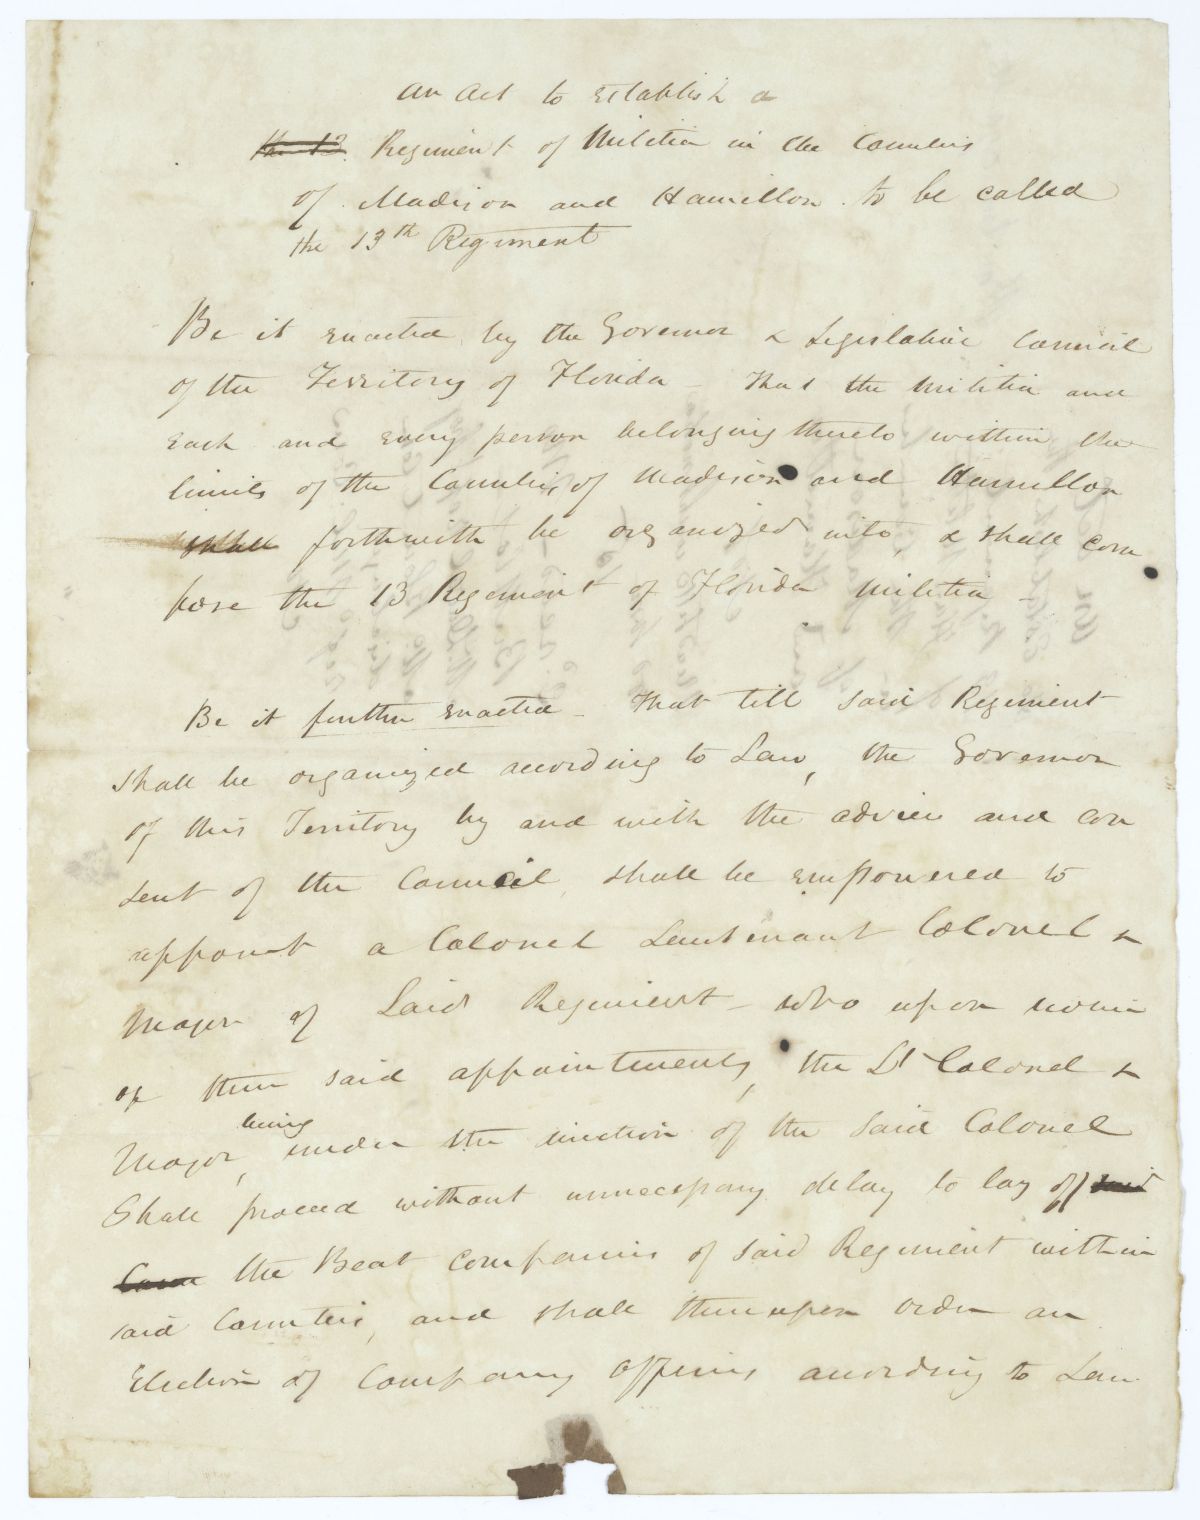 An Act to Establish a
the 13 Regiment of Militia in the Counties
of Madison and Hamilton to be called
the 13th Regiment
Be it enacted by the Governor & Legislative Council
of the Territory of Florida - That the Militia and
Each and every person belonging thereto within the
limits of the Counties of Madison and Hamilton
shall forthwith be organized into, & shall com
pose the 13 Regiment of Florida Militia -
Be it further enacted - That till said Regiment
shall be organized according to Law, the Governor
of this Territory by and with the advice and con
sent of the Council, shall be empowered to
appoint a Colonel Leutenant Colonel &
Major of Said Regiment - who upon
of their said appointments, the Lt Colonel &
Major, being under the direction of the Said Colonel
Shall proceed without unnecessary delay to lay off said
the Beat companies of said Regiment within
said Counties, and shall thereupon order an
Election of Company Officers according to Law